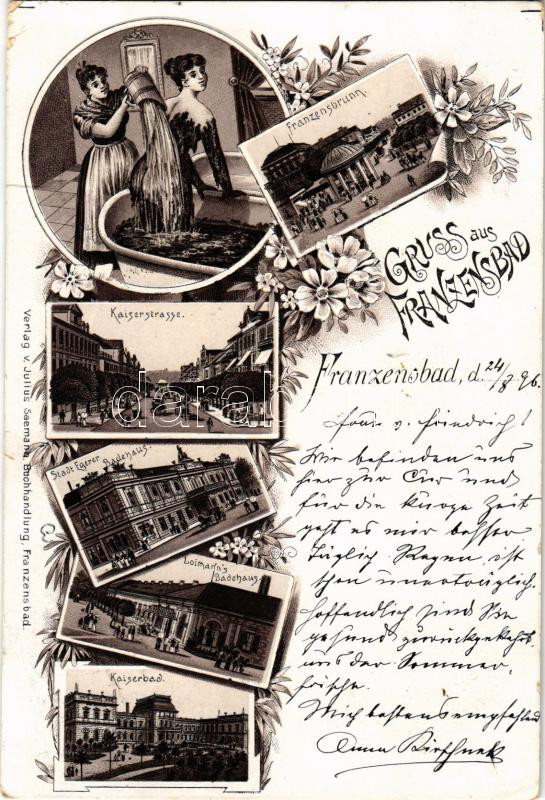 Franzensbrunn.
GRUSS aus
FRANZENSBAD
Kaiserstrasse.
Franzensbad, d. 24/8 96.
Stadt Egerer Badehaus.
Loimann's Badehaus.
Kaiserbad.
Verlag v. Julius Saemann, Buchhandlung, Franzensbad.
darab
v. Friedrich!
Wir befinden uns
hier zur Cur und
für die kurze Zeit
geht es mir besser
Täglich Regen ist
schon unerträglich.
Hoffentlich sind Sie
gesund zurückgekehrt
aus der Sommer-
frische.
Mich bestens empfehlend
Anna Kirschnek